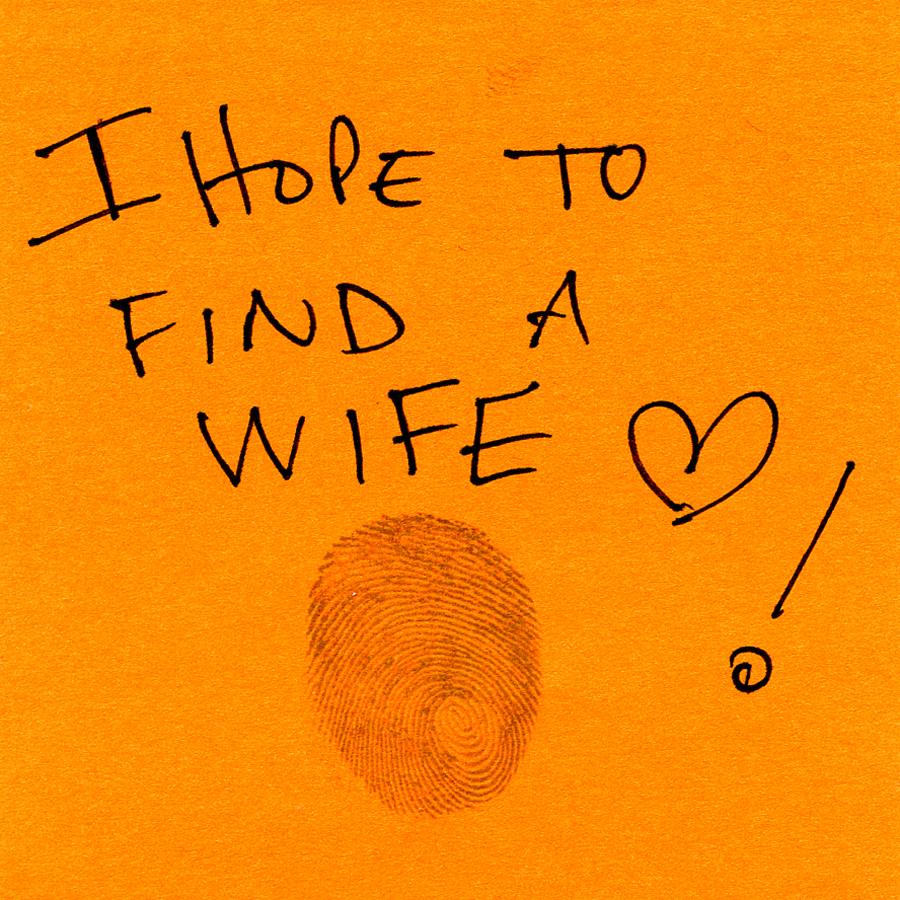 I HOPE TO
FIND A
WIFE ♡!